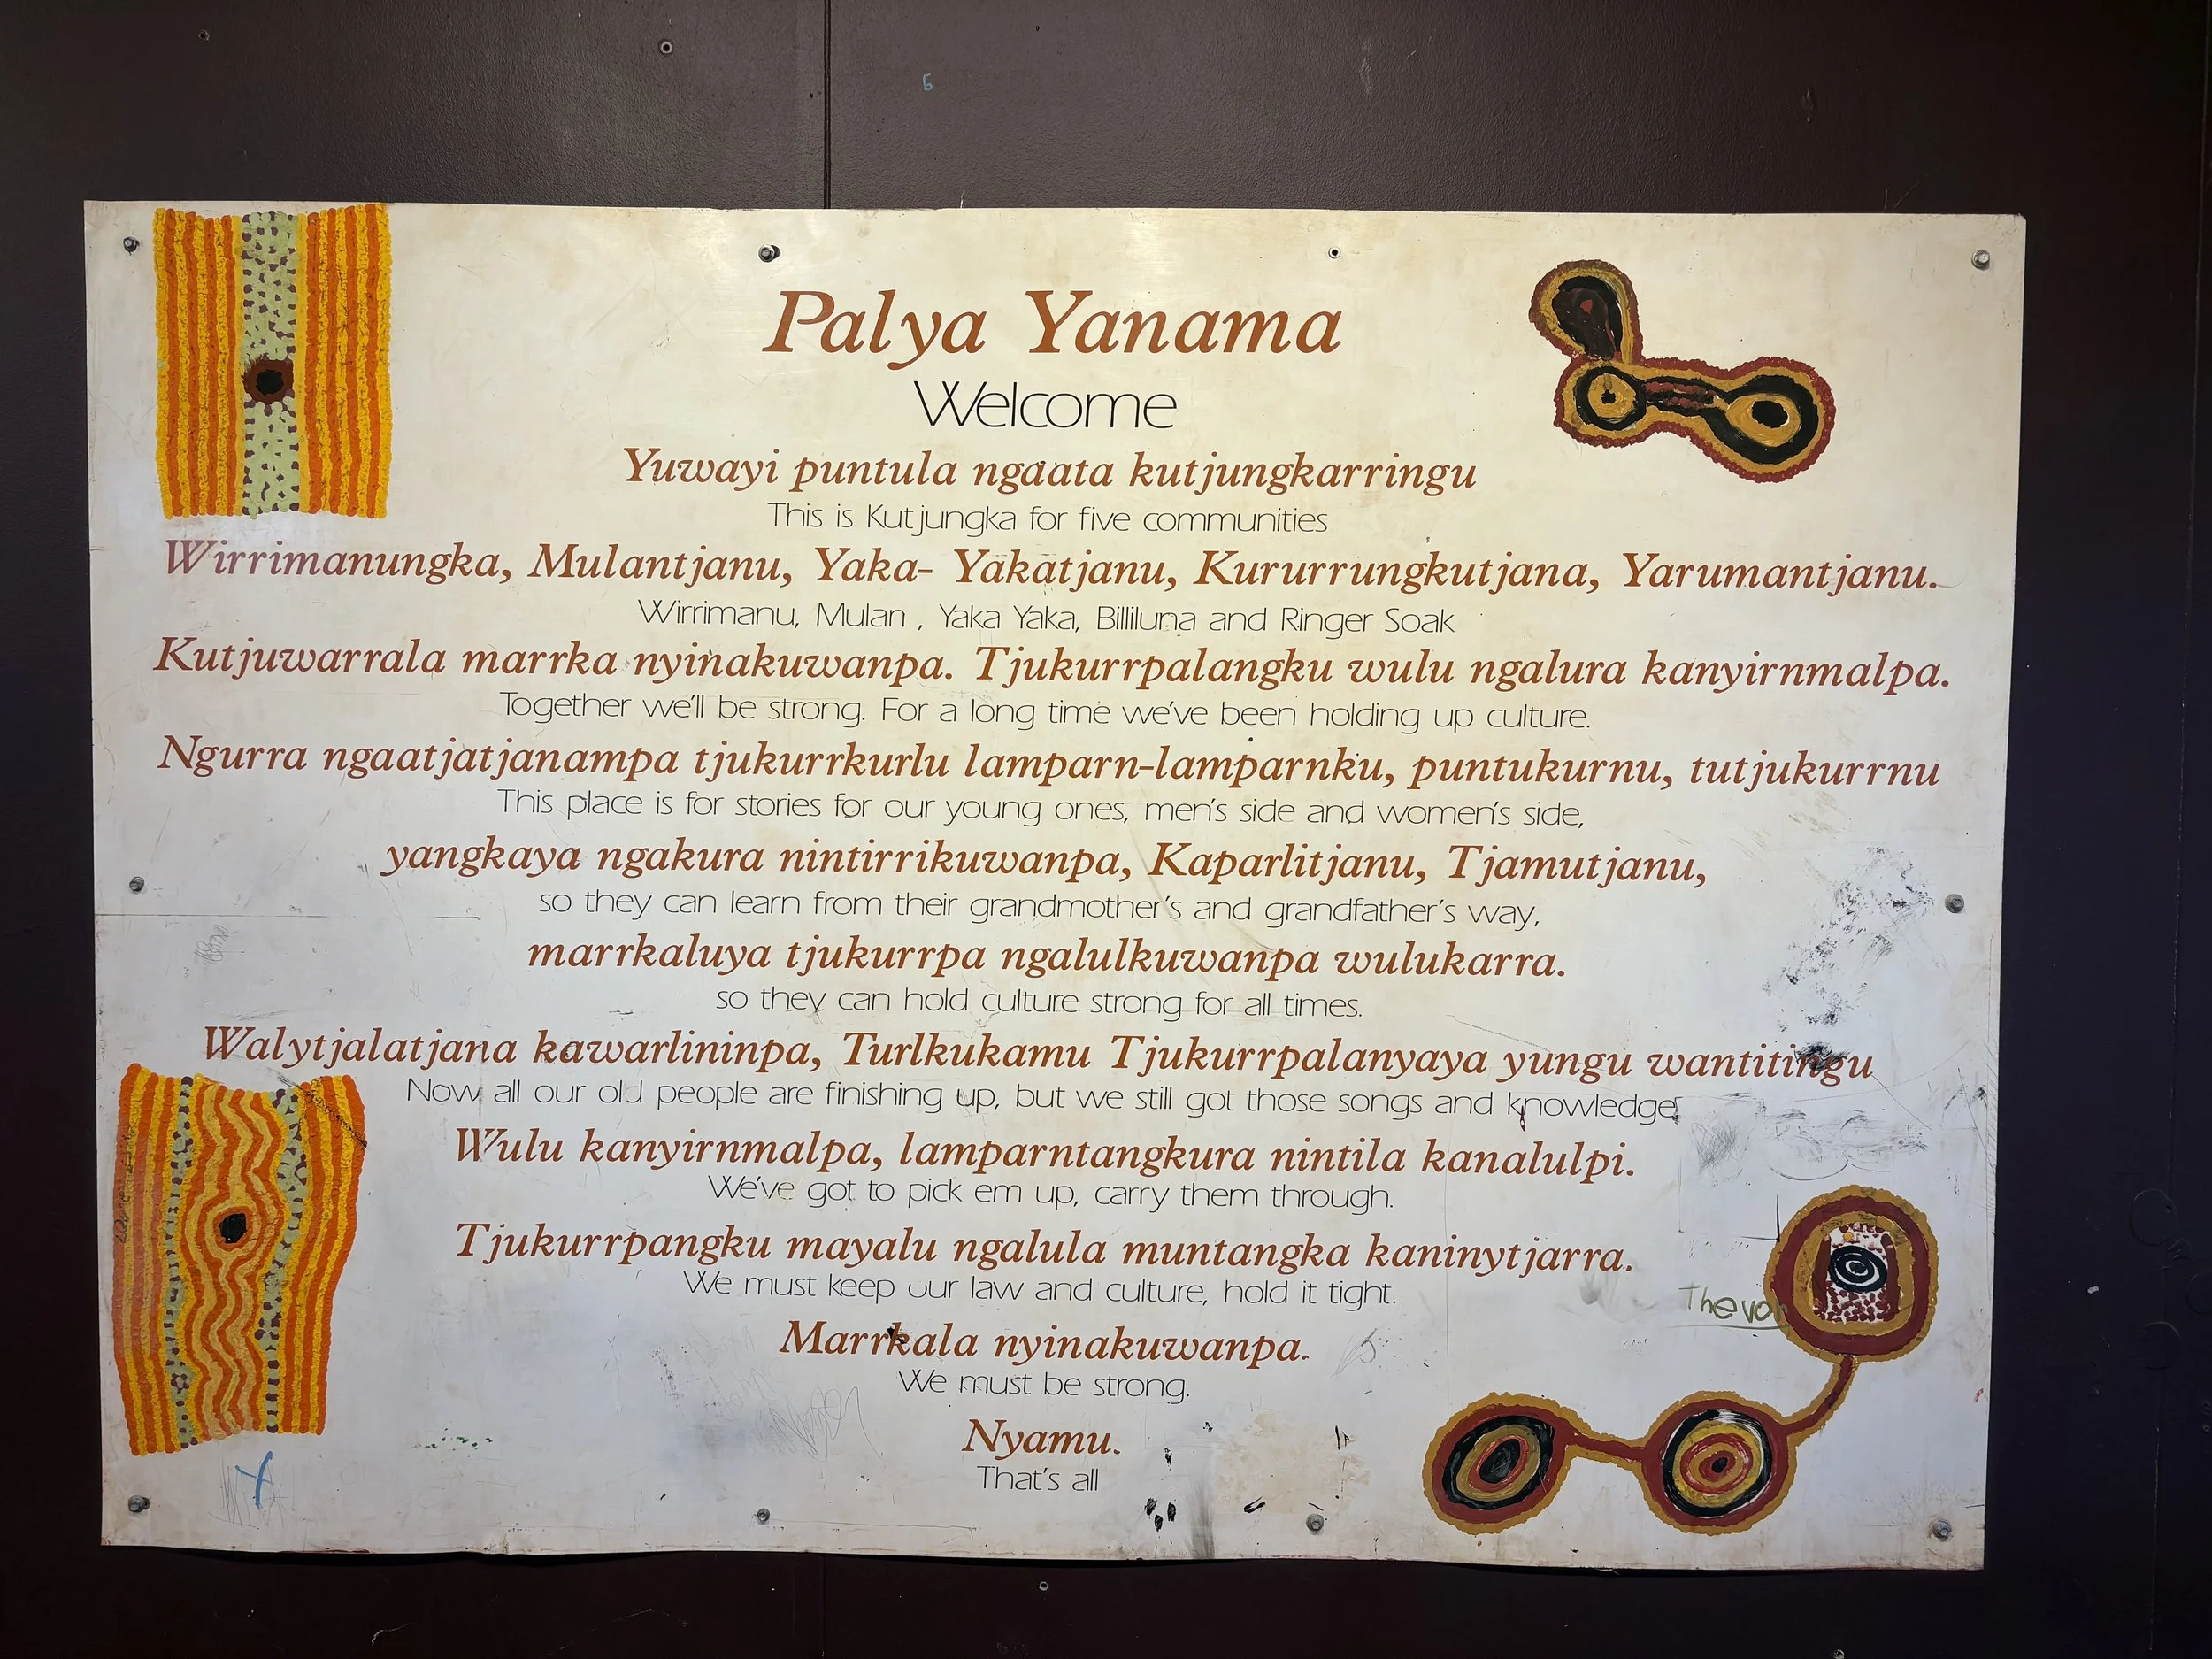 Palya Yanama
Welcome
Yuwayi puntula ngaata kutjungkarringu
This is Kutjungka for five communities
Wirrimanungka, Mulantjanu, Yaka- Yakatjanu, Kururrungkutjana, Yarumantjanu.
Wirrimanu, Mulan , Yaka Yaka, Billiluna and Ringer Soak
Kutjuwarrala marrka nyinakuwanpa. Tjukurrpalangku wulu ngalura kanyirnmalpa.
Together we'll be strong. For a long time we've been holding up culture.
Ngurra ngaatjatjanampa tjukurrkurlu lamparn-lamparnku, puntukurnu, tutjukurrnu
This place is for stories for our young ones, men's side and women's side,
yangkaya ngakura nintirrikuwanpa, Kaparlitjanu, Tjamutjanu,
so they can learn from their grandmother's and grandfather's way,
marrkaluya tjukurrpa ngalulkuwanpa wulukarra.
so they can hold culture strong for all times.
Walytjalatjana kawarlininpa, Turlkukamu Tjukurrpalanyaya yungu wantitingu
Now all our old people are finishing up, but we still got those songs and knowledge
Wulu kanyirnmalpa, lamparntangkura nintila kanalulpi.
We've got to pick em up, carry them through.
Tjukurrpangku mayalu ngalula muntangka kaninytjarra.
We must keep our law and culture, hold it tight.
Marrkala nyinakuwanpa.
We must be strong.
Nyamu.
That's all